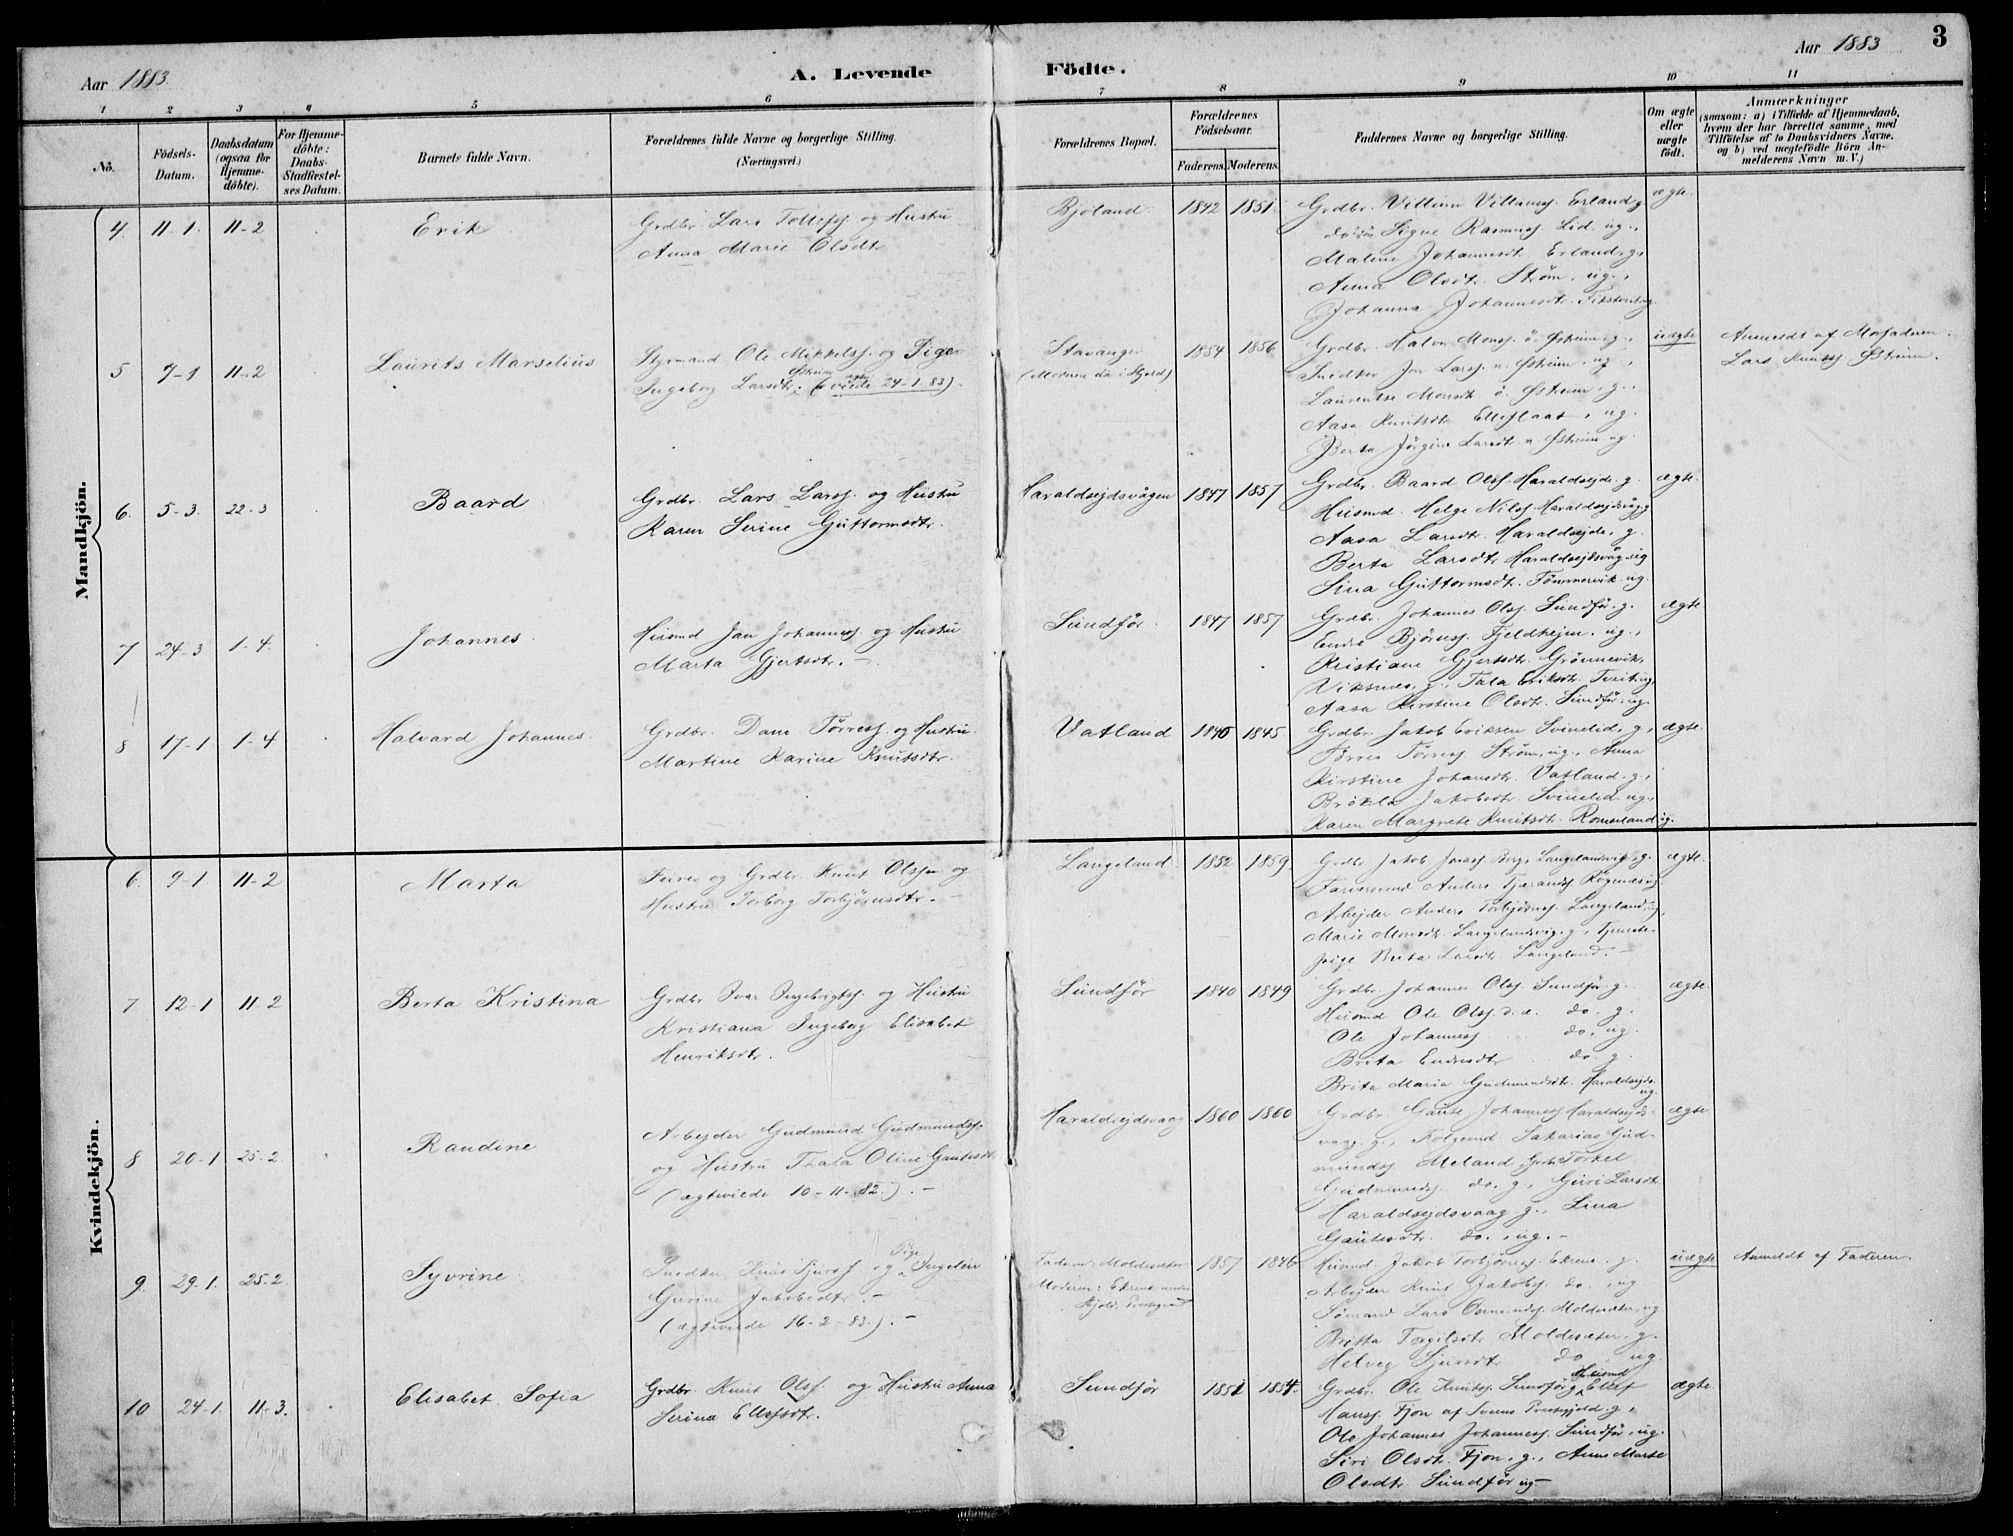 Aar 1883.
A. Levende Födte.
Aar 1883
3
1 2 3 4 5 6 7 8 9 10 11
No.
Födsels-Datum.
Daabsdatum (ogsaa for Hjemme-döbte).
For Hjemme-döbte: Daabs-Stadfæstel-ses Datum.
Barnets fulde Navn.
Forældrenes fulde Navne og borgerlige Stilling. (Næringsvei.)
Forældrenes Bopæl.
Forældrenes Födselsaar.
Faderens. Moderens.
Faddernes Navne og borgerlige Stilling.
Om ægte eller uægte födt.
Anmærkninger
(saasom: a) i Tilfælde af Hjemmedaab,
hvem der har forrettet samme, med
Tilföielse af to Daabsvidners Navne,
og b) ved uægtefödte Börn An-
melderens Navn m. V.)
Mandkjön.
4. 11-1. 11-2 Erik
Grdbr. Lars Tollefss. og Hustru
Anna Marie Olsdtr.
Bjoland 1842 1851
Grdbr. Villum Villumss. Erland g
Signe Rasmuss. Lid. ug.,
Malene Johannesdtr. Erland, g.,
Anna Olsdtr. Strøm, ug.,
Johanna Johannesdtr.
ægte.
5 7-1 11-2 Laurits Marselius
Styrmand Ole Mikkelss. og Pige
Ingeborg Larsdtr. Østreim (viede 24-1 83).
Stavanger
(Moderen da i Skjold)
1854 1856
Grdbr. Halvor Monss. ö. Østreim, g.,
Snedker Jon Larss. n. Østreim, ug.,
Laurentse Monsdt. ö. Østreim, g.,
Aasa Knutsdtr. Ellefstaat, ug.
Berta Jørgine Larsdt. n. Østreim ug.
uægte
Anmeldt af Mofaderen
Lars Knutss. Østreim.
6. 5-3. 22-3 Baard
Grdbr. Lars Larss. og Hustru
Karen Serine Guttormsdtr.
Haraldsejdsvågen 1847 1857
Grdbr. Baard Olss. Haraldsejde. g.
Husmd. Helge Nilss. Haraldsejdsvåg g
Aasa Larsdtr. Haraldsejde, g.
Berta Larsdtr. Haraldsejdsvåg. ug
Sina Guttormsdtr. Tömmervik. ug.
ægte.
7 24-3 1-4. Johannes
Husmd Jan Johanness. og Hustru
Marta Gjertsdtr. -
Sundför. 1847 1857
Grdbr. Johannes Olss. Sundför, g.
Endre Björnss. Fjeldhejm, ug.,
Kristiane Gjertsdtr. Grönnevik,
Viksnes, g., Tala Eriksdtr. Tveit ug,
Aasa Kirstine Olsdtr. Sundför, ug.
ægte
8 17-1 1-4 Halvard Johannes.
Grdbr. Dani Törress. og Hustru
Martine Karine Knutsdtr.
Vatland 1840 1845
Grdbr. Jakob Eriksen Svinelid, g.,
Törres Törress. Ström, ug., Anna
Kirstine Johansdtr. Vatland. g.,
Jakobsdtr. Svinelid. ug.,
Karen Margrete Knutsdtr. Romsland ug.
ægte.
Kvindekjön.
6. 9-1 11-2 Marta
og Grdbr. Knut Olssen og
Hustru Torborg Torbjörnsdtr. -
Langeland. 1852 1859.
Grdbr. Jakob Jonass. Berg, Langelandsvig, g.
Anders Tjerands. ug.
Arbejder Anders Torbjörnss. Langeland, ug,
Marie Monsdt. Langelandsvig. g., Tjeneste-
pige Brita Larsdt. Langeland. -
ægte.
7 12-1 11-2 Berta Kristina
Grdbr. Ivar Ingebrigtss. og Hustru
Kristiana Ingeborg Elisabet
Henriksdtr.
Sundför 1840 1849
Grdbr. Johannes Olss. Sundför g.
Husmd Ole Olss. d. e. do. g.
Ole Johanness do. ug.
Brita Endresdtr do. g.
Brita Maria Gudmundsdtr. Haraldsejde. ug.
ægte.
8 20-1 25-2 Raudine
Arbejder Gudmund Gudmundss.
og Hustru Thala Oline Gautesdt.
(ægteviede 10-11-82.). -
Haraldsejdsvaag 1860 1860
Grdbr. Gaute Johanness. Haraldsejds-
vaag. g., Sakarias Gud-
mundss. Meland, Grdb. Torkel
Gudmundss. do. g., Guri Larsdt.
Haraldsejdsvaag g., Lina
Gautesdtr. do., ug. -
ægte
9. 29-1. 25-2. Syvrine
Snedker Knut Sjurss. og Pige Ingelin
Gurine Jakobsdtr. -
(ægteviede 16-2-83.). -
Faderen: Moldesæter
Moderen: Ekrene under
Skjolds Prestegaard
1857 1846
Husmd. Jakob Torbjörnss. Ekrene, g.
Arbejder Knut Jakobss. do., ug
Sömand Lars Osmundss. Moldesæter, ug
Britta Torgilsdt. Moldesæter, g.
Helveg Sjursdt. do ug.
uægte
Anmeldt af Faderen.
10 24-1. 11-3. Elisabet Sofia
Grdbr. Knut Olss. og Hustru Anna
Serina Ellefsdtr.
Sundför 1851 1854.
Grdbr. Ole Knutss. Sundför g, Husmd Ellef
Hanss. Fjon af Sveens Prestegjeld. g.,
Ole Johannes Johanness. Sundför, ug.
Siri Olsdtr. Fjon, g., Anne Marte
Olsdtr Sundför ug -
ægte